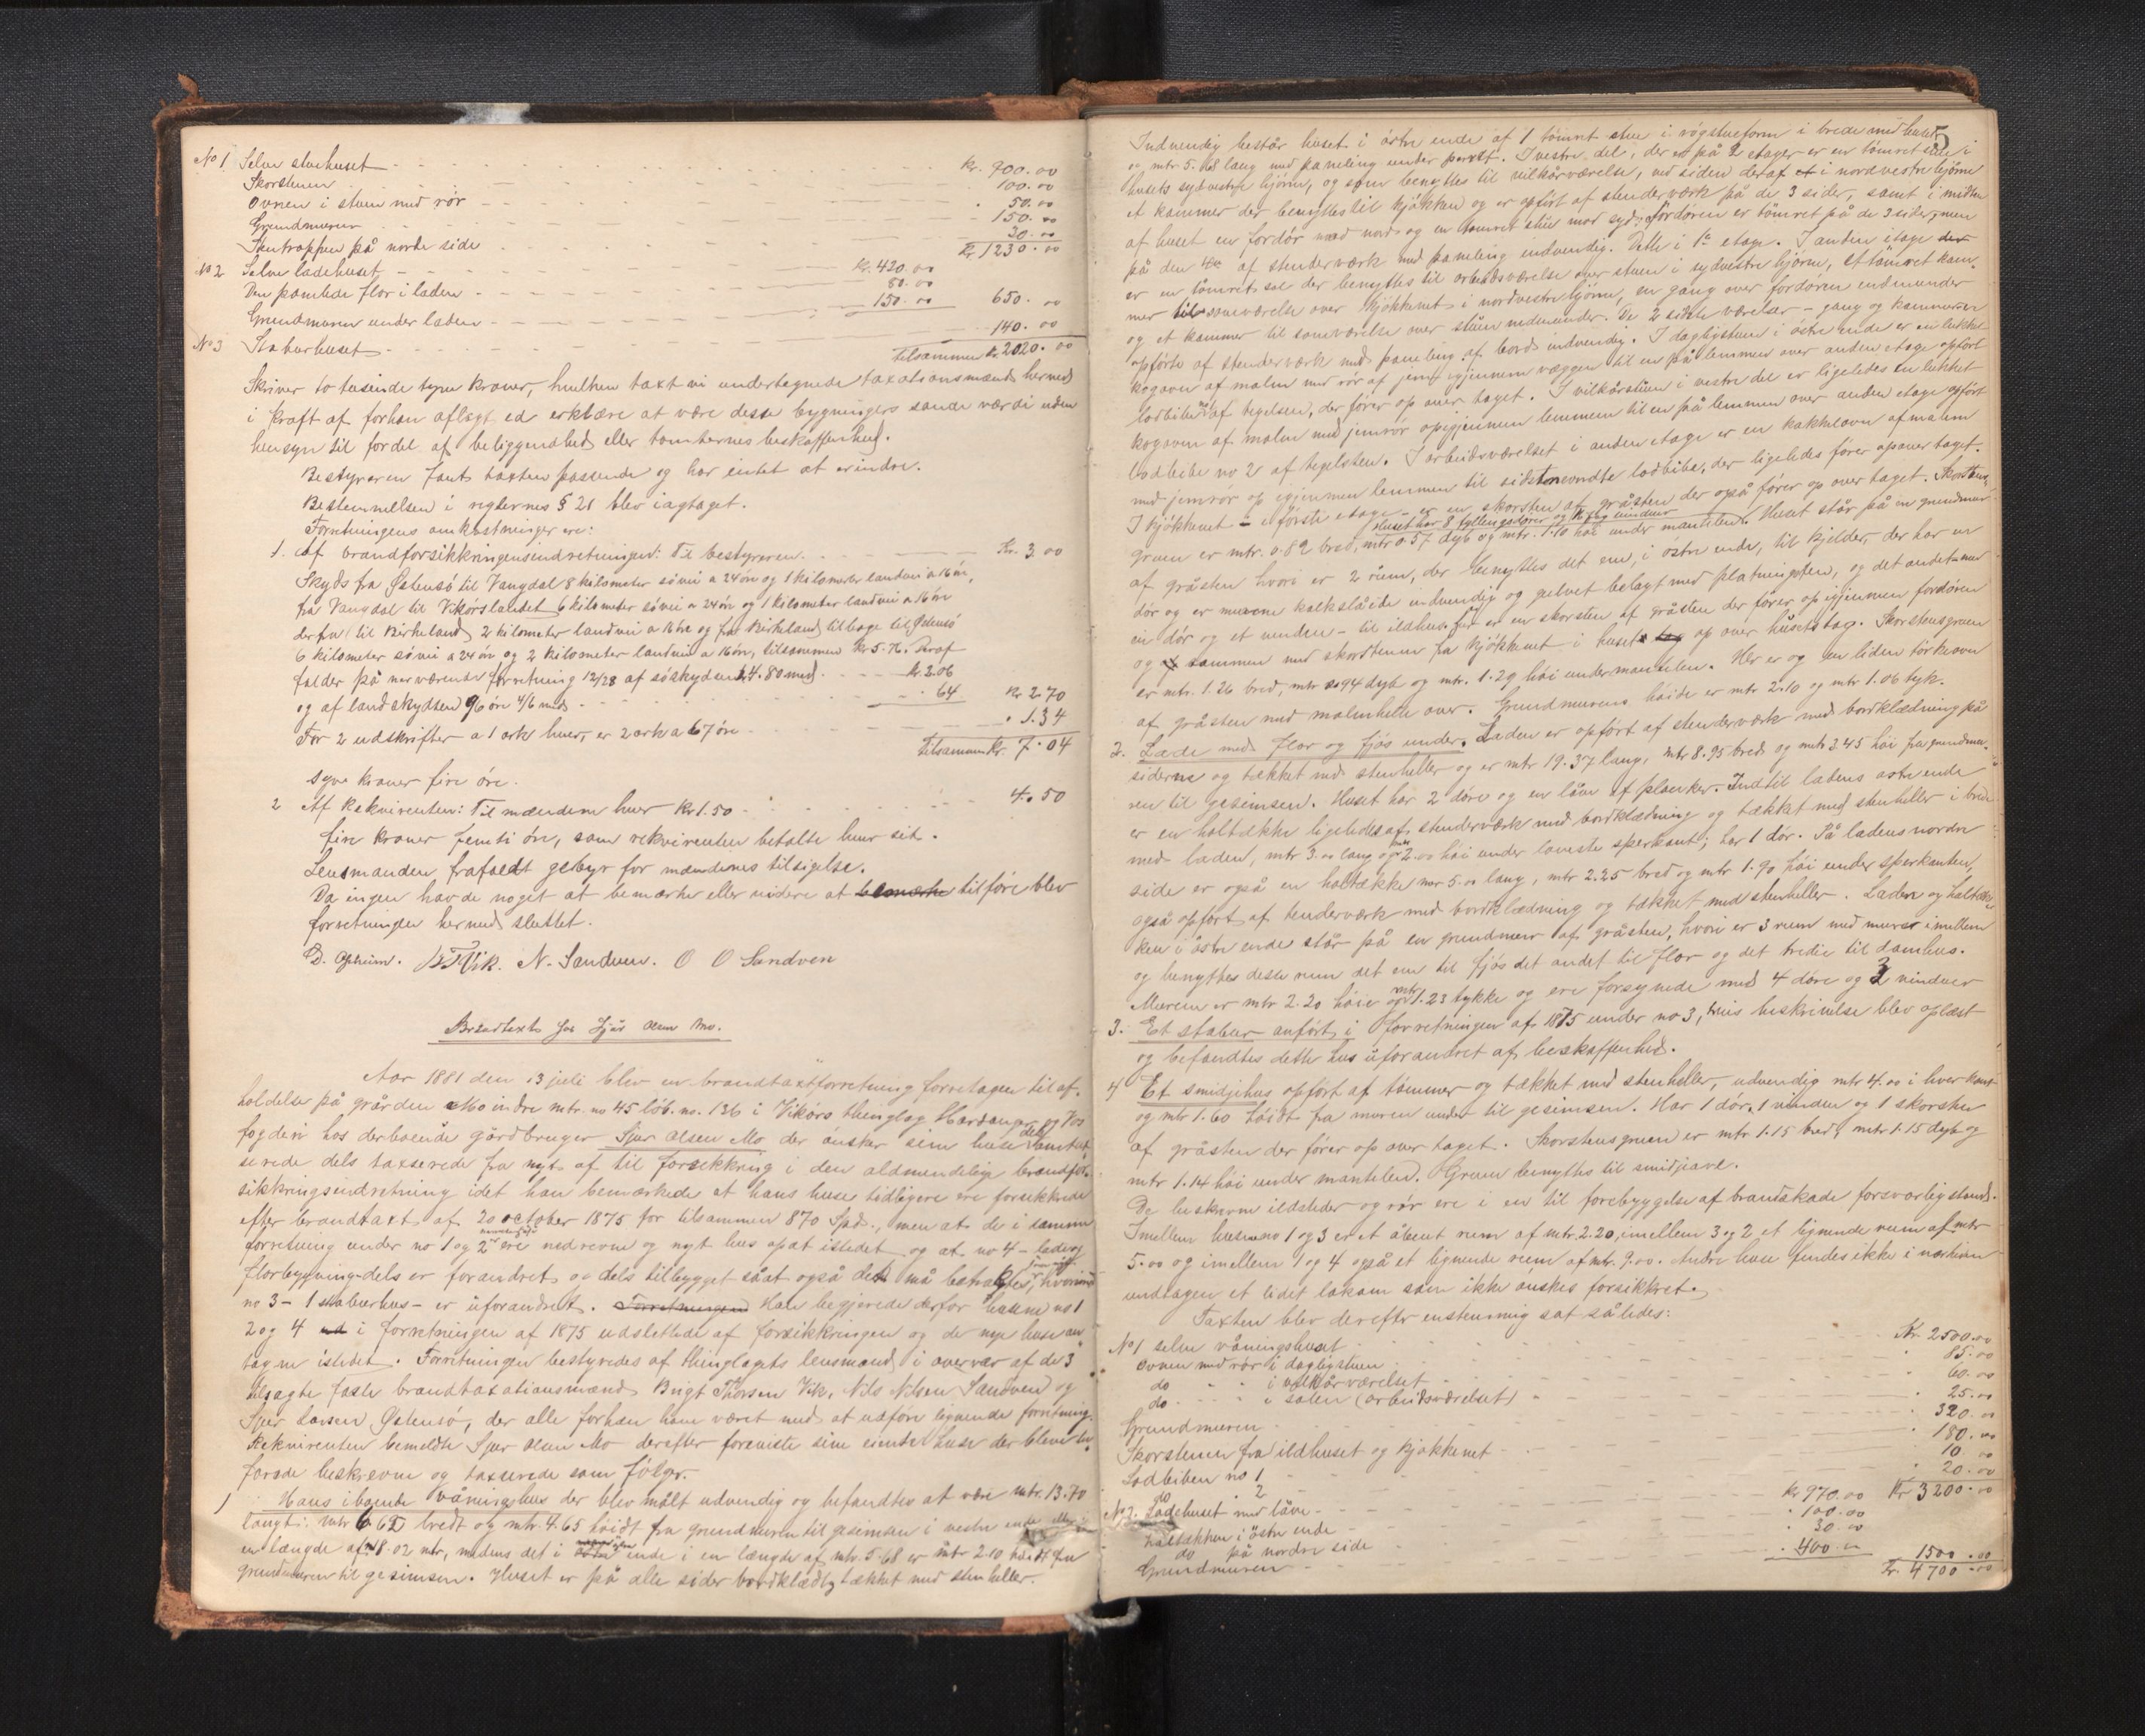 No 1 Selve stuehuset - - - Kr. 900.00
Skorstenen - - - 100.00
Ovnen i stuen med rör - - - 50.00
Grundmuren - - - 150.00
Stentrappen på nordre side - - - 30.00
Kr. 1230.00
No 2 Selve ladehuset - - - Kr. 420.00
Den pantede flor i laden - - - 80.00
Grundmuren under laden - - - 150.00 650.00
No 3 Staburhuset - - - 140.00
Tilsammen Kr. 2020.00
Skriver to tusinde tyve kroner, hvilken taxt vi undertegnede taxationsmænd herved
i kraft af forhen aflagt ed erklære at være disse bygningers sande værdi uden
hensyn til fordel af beliggenhed eller tomternes beskaffenhed.
Bestyreren fant taxten passende og har intet at erindre.
Bestemmelsen i reglernes § 21 blev iagtaget.
Forretningens omkostninger ere:
1. Af brandforsikkringsindretningen: Til bestyreren - - - Kr. 3.00
Skyds fra Östensö til Vangdal 8 kilometer söveie a 24 öre og 1 kilometer landvei a 16 öre,
fra Vangdal til Vikörslandet 6 kilometer söveie a 24 öre og 1 kilometer landvei a 16 öre
derfra til Birkeland 2 kilometer landvei a 16 öre og fra Birkeland tilbage til Östensö
6 kilometer söveie a 24 öre og 2 kilometer landvei a 16 öre, tilsammen Kr 5.76. Heraf
falder på nærværende forretning 12/28 af söskydsen 4.80 med - - - Kr 2.06
og af landskydsen 96 öre 4/6 med - - - 64 Kr 2.70
For 2 udskrifter a 1 ark hver, er 2 ark a 67 öre - - - 1.34
Tilsammen Kr. 7.04
syv kroner fire öre.
2 Af Rekvirenten: Til mændene hver Kr 1.50 - - - 4.50
fire kroner femti öre, som rekvirenten betalte hver sit.
Lensmanden frafaldt gebyr for mændenes tilsigelse.
Da ingen havde noget at bemærke eller videre at bemærke tilföre blev
forretningen hermed sluttet.
D. Opheim. B T Vik. N. Sandven. O O Sandven
Brandtaxt hos Sjur Olsen Mo.
Aar 1881 den 13 juli blev en brandtaxtforretning foretagen til af-
holdelse på gården Mo indre mtr. no 45 löb. no. 136 i Vikörs thinglag Hardanger og Vos
fogderi hos derboende gårdbruger Sjur Olsen Mo der önsker sine huse dels omtak-
serede dels taxserede fra nyt af til forsikkring i den almindelige brandfor-
sikkringsindretning idet han bemærkede at hans huse tidligere ere forsikkrede
efter brandtaxt af 20 october 1875 for tilsammen 870 Spd., men at de i samme
forretning under no 1 og 2 ere nedrevne og nyt hus opsat istedet og at no 4 - lade og
florbygning - dels er forandret og dels tilbygget såat også det må betragtes, hvorimod
no 3 - 1 staburhus - er uforandret. Forretningen Han begjerede derfor husene no 1
2 og 4 i forretningen af 1875 udslettede af forsikkringen og de nye huse an-
tagne istedet. Forretningen bestyredes af thinglagets lensmand i overvær af de 3
tilsagte faste brandtaxationsmænd Brigt Thorsen Vik, Nils Nilsen Sandven og
Sjur Larsen Östensö, der alle forhen have været med at udföre lignende forretning.
Rekvirenten bemeldte Sjur Olsen Mo derefter foreviste sine eiende huse der bleve be-
farede beskrevne og taxserede som fölger.
1 Hans iboende våningshus der blev målt udvendig og befandtes at være mtr. 13.70
langt; mtr 6.65 bredt og mtr. 4.65 höidt fra grundmuren til gesimsen i vestre ende
en længde af 8.02 mtr, medens det i östre ende i en længde af mtr. 5.68 er mtr 2.10 höidt fra
grundmuren til gesimsen. Huset er på alle sider bordklædt og tækket med stenheller.
5
Indvendig består huset i östre ende af 1 tömret stue i rögstueform i brede med huset
og mtr 5.68 lang med paneling under . I vestre del, der er på 2 etager er en tömret stue i
husets sydvestre hjörne, og som benyttes til vilkårværelse, ved siden deraf i nordvestre hjörne
et kammer der benyttes til kjökken og er opfört af stenderværk på de 3 sider, samt i midten
af huset en fordör mod nord og en tömret stue mod syd; fordören er tömret på de 3 sider, men
på den 4de af stenderværk med paneling indvendig. Dette i 1te etage. I anden etage
er en tömret sal der benyttes til arbeidsværelse over stuen i sydvestre hjörne, et tömret kam-
mer til soveværelse over kjökkenet i nordvestre hjörne, en gang over fordören endnunder
og et kammer til soveværelse over stuen nedenunder. De 2 sidste værelser - gang og kammeren
opförte af stenderværk med paneling af bord indvendig. I dagligstuen i östre ende er en lukket
kogovn af malm med rör af jern igjennem væggen til en på lemmen over anden etage opfört
lodbibe af tegelsten, der förer op over taget. I vilkårstuen i vestre del er ligeledes en lukket
kogovn af malm med jernrör op igjennem lemmen til en på lemmen over anden etage opfört
lodbibe no 2 af tegelsten. I arbeidsværelset i anden etage er en kakkelovn af malm
med jernrör op igjennem lemmen til sidstnævndte lodbibe, der ligeledes förer op over taget.
I kjökkenet - i förste etage - er en skorsten af gråsten der også förer op over taget. Skorstens-
Huset har 8 fyllingsdöre og 16 fag vinduer
gruen er mtr. 0.82 bred, mtr 0.57 dyb og mtr. 1.10 höi under mantelen. Huset står på en grundmur
af gråsten hvori er 2 rum, der benyttes det ene, i östre ende, til kjelder, der har en
dör og er murene kalkslåede indvendig og gulvet belagt med platningsten, og det andet - med
en dör og et vindue - til ildhus, er en skorsten af gråsten der förer op igjennem fordören
og sammen med skorstenen fra kjökkenet i huset op over husets tag. Skorstensgruen
er mtr. 1.26 bred, mtr 0.94 dyb og mtr. 1.29 höi under mantelen. Her er og en liden törkeovn
af gråsten med malmhelle over. Grundmurens höide er mtr 2.10 og mtr 1.06 tyk.
2. Lade med flor og fjös under. Laden er opfört af stenderværk med bordklædning på
siderne og tækket med stenheller og er mtr 19.37 lang, mtr 8.95 bred og mtr 3.45 höi fra grundmu-
ren til gesimsen. Huset har 2 döre og en låve af planker. Indtil ladens östre ende
er en haltække ligeledes af stenderværk med bordklædning og tækket med stenheller i brede
med laden, mtr 3.00 lang og mtr 2.00 höi under laveste sperkant; har 1 dör. På ladens nordre
side er også en haltække mtr 5.00 lang, mtr 2.25 bred og mtr 1.90 höi under sperkanten,
også opfört af stenderværk med bordklædning og tækket med stenheller. Laden og haltæk-
ken i östre ende står på en grundmur af gråsten, hvori er 3 rum med murer imellem
og benyttes deste rum det ene til fjös det andet til flor og det tredie til lamhus.
Muren er mtr 2.20 höi og mtr 1.23 tykke og ere forsynede med 4 döre og 3 vinduer
3. Et stabur anfört i forretningen af 1875 under no 3, hvis beskrivelse blev oplæst
og befandtes dette hus uforandret af beskaffenhed.
4 Et smidjehus opfört af tömmer og tækket med stenheller, udvendig mtr 4.00 i hver kant
og mtr 1.60 höidt fra muren under til gesimsen. Har 1 dör, 1 vindue og 1 skorsten
af gråsten der förer op over taget. Skorstensgruen er mtr 1.15 bred, mtr 1.15 dyb og
mtr 1.14 höi under mantelen. Gruen benyttes til smidjeavl.
De beskrevne ildsteder og rör ere i en til forebyggelse af brandskade forsvarlig stand.
Imellem husene no 1 og 3 er et åbent rum af mtr. 2.20, imellem 3 og 2 et lignende rum af mtr
5.00 og imellem 1 og 4 også et lignende rum af mtr. 9.00. Andre huse findes ikke i nærheden
undtagen et lidet lokum som ikke önskes forsikkret.
Taxten blev derefter enstemmig sat således:
No 1 selve våningshuset - - - Kr. 2500.00
Ovnen med rör i dagligstuen - - - 85.00
do - - i vilkårværelset - - - 60.00
do - - i salen (arbeidsværelset) - - - 25.00
Grundmuren - - - 320.00
Skorstenen fra ildhuset og kjökkenet - - - 180.00
Lodbiben no 1 - - - 10.00
do " 2 - - - 20.00
Kr 3200.00
No 2. Ladehuset med låve - - - Kr 970.00
haltækken i östre ende - - - 100.00
do på nordre side - - - 30.00
Grundmuren - - - 400.00 1500.00
Kr. 4700.00